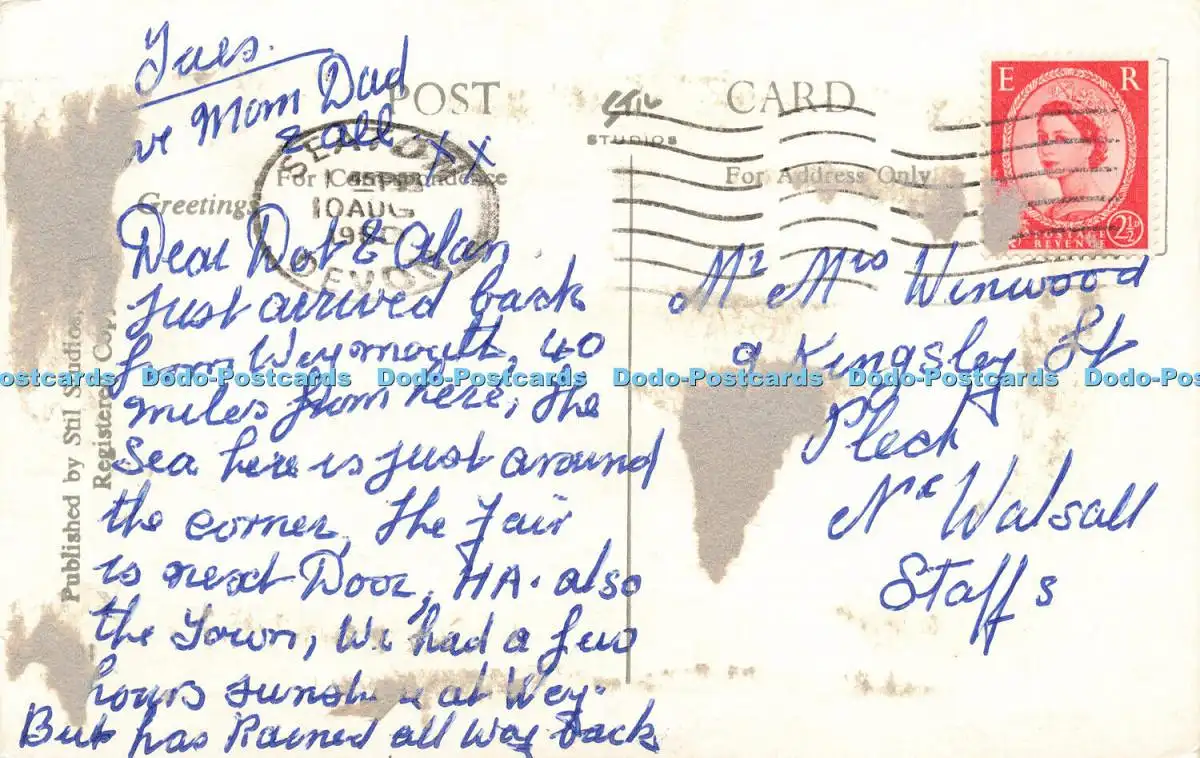 Tues.
Mom Dad
& all xx
POST CARD
STIL
STUDIOS
For Correspondence
For Address Only
Greetings
SEATON
10 AUG
1960
DEVON
E R
POSTAGE
REVENUE
2½D
Dear Dot & Alan
Just arrived back
from Weymouth, 40
miles from here, the
Sea here is just around
the corner, The Fair
is next Door, HA. also
the Town, We had a few
hours at Wey.
But has Rained all Way back
Mr Mrs Winwood
9 Kingsley St
Pleck
Nr Walsall
Staffs
Published by Stil Studios,
Registered
Dodo-Postcards Dodo-Postcards Dodo-Postcards Dodo-Postcards Dodo-Postcards Dodo-Postcards